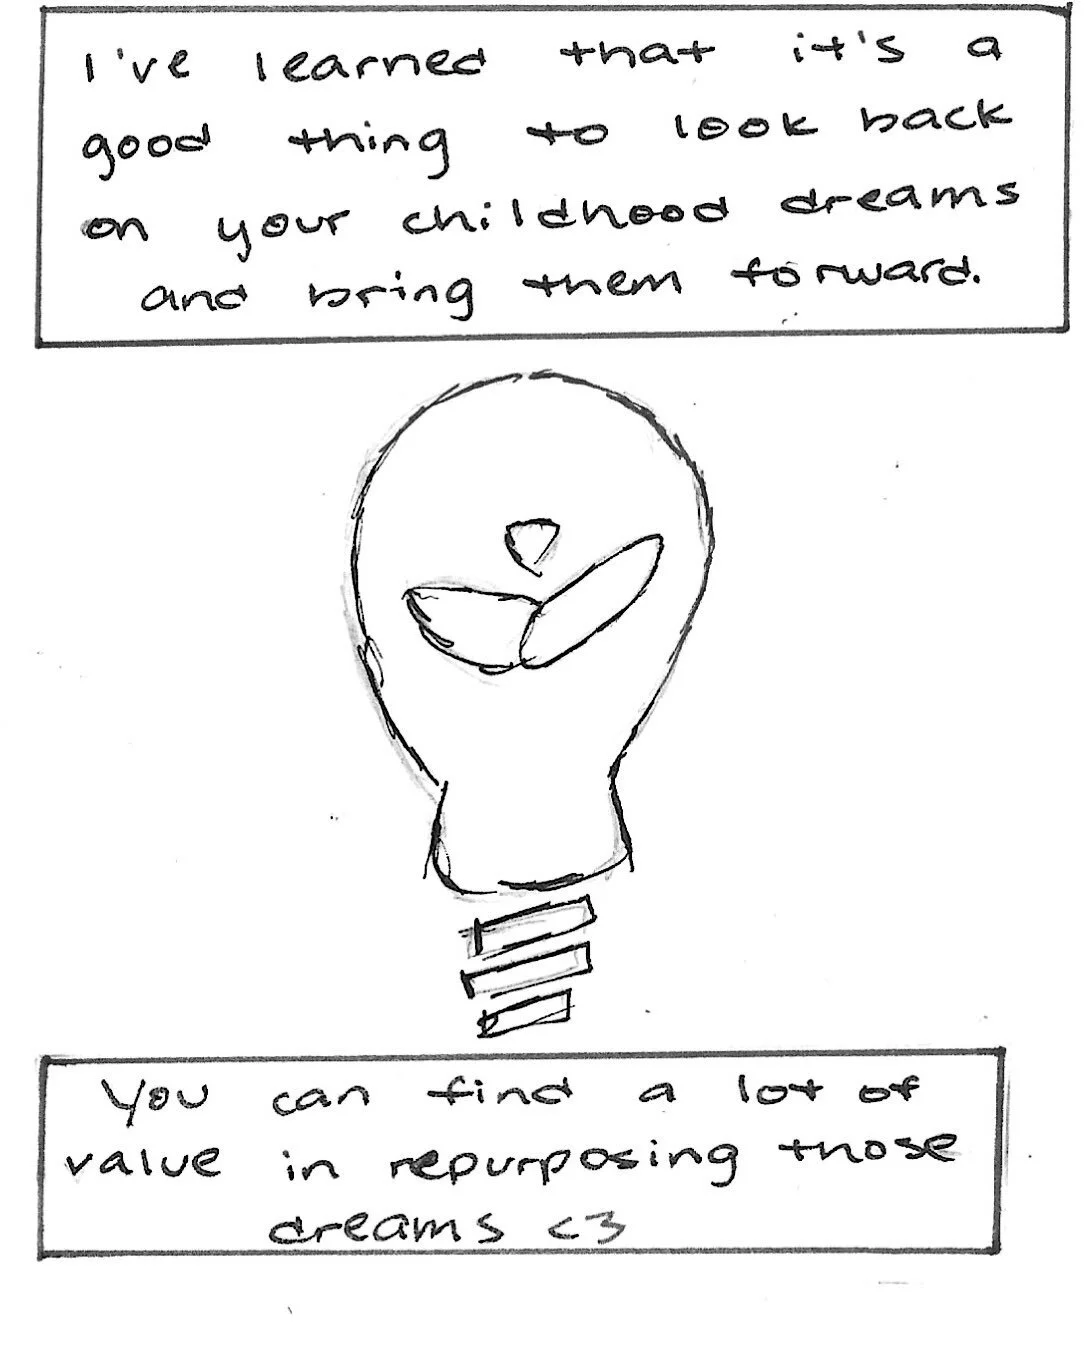 I've learned that it's a
good thing to look back
on your childhood dreams
and bring them forward.
You can find a lot of
value in repurposing those
dreams <3